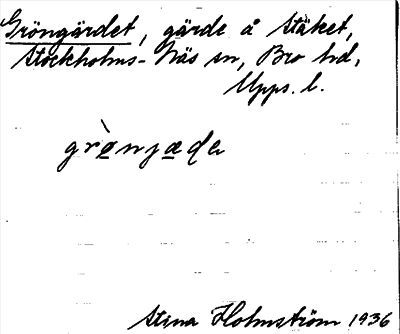 Gröngärdet, gärde å Stäket,
Stockholms-Näs sn, Bro hd,
Upps. l.
grònjæde
Stina Holmström 1936